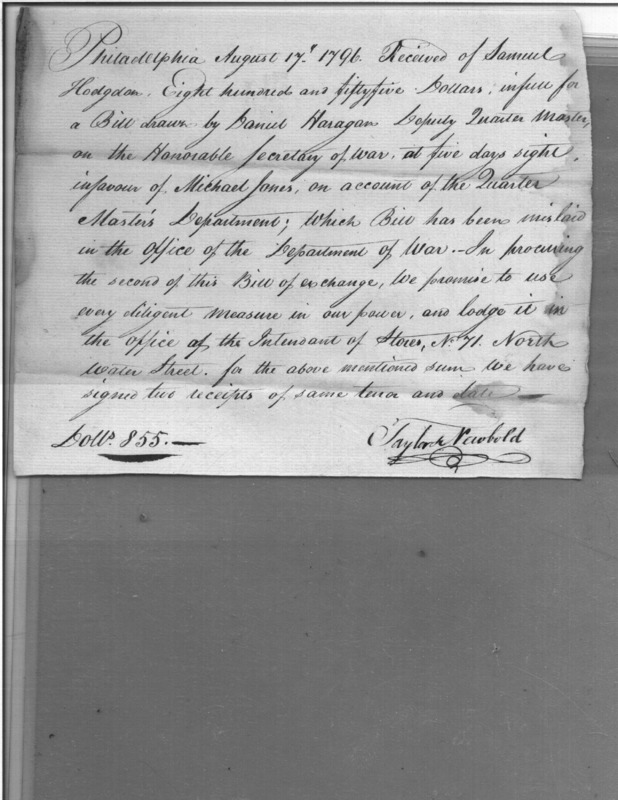 Philadelphia August 17t. 1796. Received of Samuel
Hodgdon, Eight hundred and fiftyfive Dollars; infull for
a Bill drawn by Daniel Haragan Deputy Quarter Master,
on the Honorable Secretary of War, at five days sight,
infavour of Michael Jones, on account of the Quarter
Master's Department; Which Bill has been mislaid
in the Office of the Department of War.—In procuring
the second of this Bill of exchange, We promise to use
every diligent measure in our power, and lodge it in
the office of the Intendant of Stores, No. 71. North
Water Street. for the above mentioned sum We have
signed two receipts of same tenor and date —
Dolls. 855.—
Taylor & Newbold